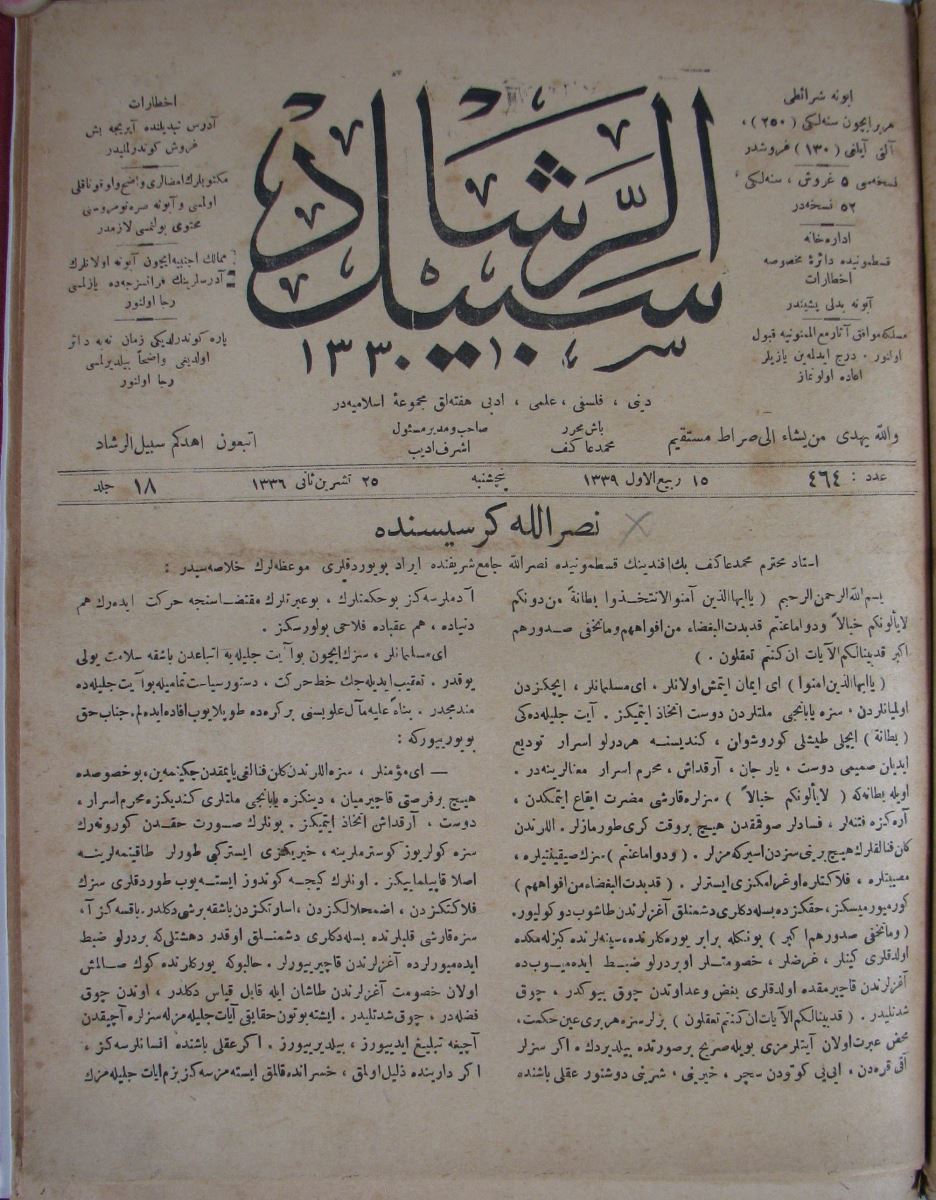 ابونه شرائطی
هر یر ایچون سنه‌لکی (۲۵۰)،
آلتی آیلغی (۱۳۰) غروشدر
نسخه‌سی ۵ غروش، سنه‌لکی
۵۲ نسخه‌در
اداره‌خانه
قسطمونیده دائرهٔ مخصوصه
اخطارات
آبونه بدلی پشیندر
مسلکه موافق آثار مع الممنونیه قبول
اولنور. درج ایدلمه‌ین یازیلر
اعاده اولونماز
سبیل الرشاد
۱۳۳۰
اخطارات
آدرس تبدیلنده آیریجه بش
غروش کوندرلملیدر
مکتوبلرك امضالری واضح و اوقوناقلی
اولمسی و آبونه صره نومروسنی
محتوی بولنمسی لازمدر
ممالك اجنبیه ایچون آبونه اولانلرك
آدرسلرینك فرانسزجه‌ده یازلمسی
رجا اولنور
پاره کوندرلدیکی زمان نه‌یه دائر
اولدیغی واضحاً بیلدیرلمسی
رجا اولنور
دینی، فلسفی، علمی، ادبی هفته‌لق مجموعهٔ اسلامیه‌در
والله یهدی من یشاء الی صراط مستقیم
باش محرر
محمد عاکف
صاحب و مدیر مسئول
اشرف ادیب
اتبعون اهدکم سبیل الرشاد
عدد : ٤٦٤
۱۵ ربیع الاول ۱۳۳۹
پنجشنبه
۲۵ تشرین ثانی ۱۳۳۶
۱۸ جلد
نصر الله کرسیسنده
استاد محترم محمد عاکف بك افندینك قسطمونیده نصر الله جامع شریفنده ایراد بویوردقلری موعظه‌لرك خلاصه‌سیدر :
بسم الله الرحمن الرحیم (یا ایها الذین آمنوا لا تتخذوا بطانة من دونکم
لا یألونکم خبالاً ودوا ما عنتم قد بدت البغضاء من افواههم وما تخفی صدورهم
اکبر قد بینا لکم الآیات ان کنتم تعقلون.)
(یا ایها الذین امنوا) ای ایمان ایتمش اولانلر، ای مسلمانلر، ایچکزدن
اولمیانلردن، سزه یابانجی ملتلردن دوست اتخاذ ایتمیکز. آیت جلیله‌ده‌کی
(بطانة) ایچلی طیشلی کوروشولن، کندیسنه هر درلو اسرار تودیع
ایدیلن صمیمی دوست، یار جان، آرقداش، محرم اسرار معنالرینه‌در.
اویله بطانه که (لا یألونکم خبالاً) سزلره قارشی مضرت ایقاع ایتمکدن،
آره‌کزه فتنه‌لر، فسادلر صوقمقدن هیچ بر وقت کری طورمازلر. اللرندن
کلن فنالقلرك هیچ برینی سزدن اسیرکه‌مزلر. (ودوا ما عنتم) سزك صیقینتیلره،
مصیبتلره، فلاکتلره اوغرامکزی ایسترلر. (قد بدت البغضاء من افواههم)
کورمیورمیسکز، حقکزده بسله‌دکلری دشمنلق آغزلرندن طاشوب دوکولیور.
(وما تخفی صدورهم اکبر) بونکله برابر یوره‌کلرنده، سینه‌لرنده کیزله‌مکده
اولدقلری کینلر، غرضلر، خصومتلر او بردرلو ضبط ایده‌میوب ده
آغزلرندن قاچیرمقده اولدقلری بغض و عداوتدن چوق بیوکدر، چوق
شدتلیدر. (قد بینا لکم الآیات ان کنتم تعقلون) بزلر سزه هر بری عین حکمت،
محض عبرت اولان آیتلرمزی بویله صریح بر صورتده بیلدیردك. اکر سزلر
آقی قره‌دن، ایی‌یی کوتودن سچر، خیرینی، شرینی دوشنور عقلی باشنده
آدملرسه‌کز بو حکمتلرك، بو عبرتلرك مقتضاسنجه حرکت ایده‌رك هم
دنیاده، هم عقباده فلاحی بولورسکز.
ای مسلمانلر، سزك ایچون بو آیت جلیله‌یه اتباعدن باشقه سلامت یولی
یوقدر. تعقیب ایدیله‌جك خط حرکت، دستور سیاست تمامیله بو آیت جلیله‌ده
مندمجدر. بناءً علیه مآل علویسنی بر کره ده طوپلایوب افاده ایده‌لم، جناب حق
بویوریورکه :
— ای مؤمنلر، سزه اللرندن کلن فنالغی یاپمقدن چکینمه‌ین، بو خصوصده
هیچ بر فرصتی قاچیرمیان، دینکزه یابانجی ملتلری کندیکزه محرم اسرار،
دوست، آرقداش اتخاذ ایتمیکز. بونلرك صورت حقدن کورونه‌رك
سزه کولر یوز کوسترملرینه، خیریکزی ایستر کبی طورلر طاقینمه‌لرینه
اصلا قاپیلمایکز. اونلرك کیجه کوندوز ایسته‌یوب طوردقلری سزك
فلاکتکزدن، اضمحلالکزدن، اسارتکزدن باشقه برشی دکلدر. باقسه‌کز آ،
سزه قارشی قلبلرنده بسله‌دکلری دشمنلق اوقدر دهشتلی که بردرلو ضبط
ایده‌میورلر ده آغزلرندن قاچیرییورلر. حالبوکه یورکلرنده کوك صالمش
اولان خصومت آغزلرندن طاشان ایله قابل قیاس دکلدر، اوندن چوق
فضله‌در، چوق شدتلیدر. ایشته بوتون حقایقی آیات جلیله‌مزله سزلره آچیقدن
آچیغه تبلیغ ایدییورز، بیلدیرییورز. اکر عقلی باشنده انسانلرسه‌کز،
اکر دارینده ذلیل اولمق، خسرانده قالمق ایسته‌مزسه‌کز بزم آیات جلیله‌مزك